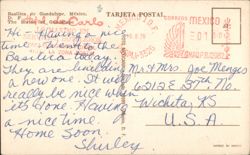 Basilica de Guadalupe, Mexico,
TARJETA POSTAL
CORREOS MEXICO
Hi - Having a nice
time. Went to the
Basilica today.
They are building
a new one. It will
really be nice when
it's done. Having
a nice time.
Home Soon.
Shirley
Mr & Mrs. Joe Menges
6212 E 37th No.
Wichita, KS
U.S.A.